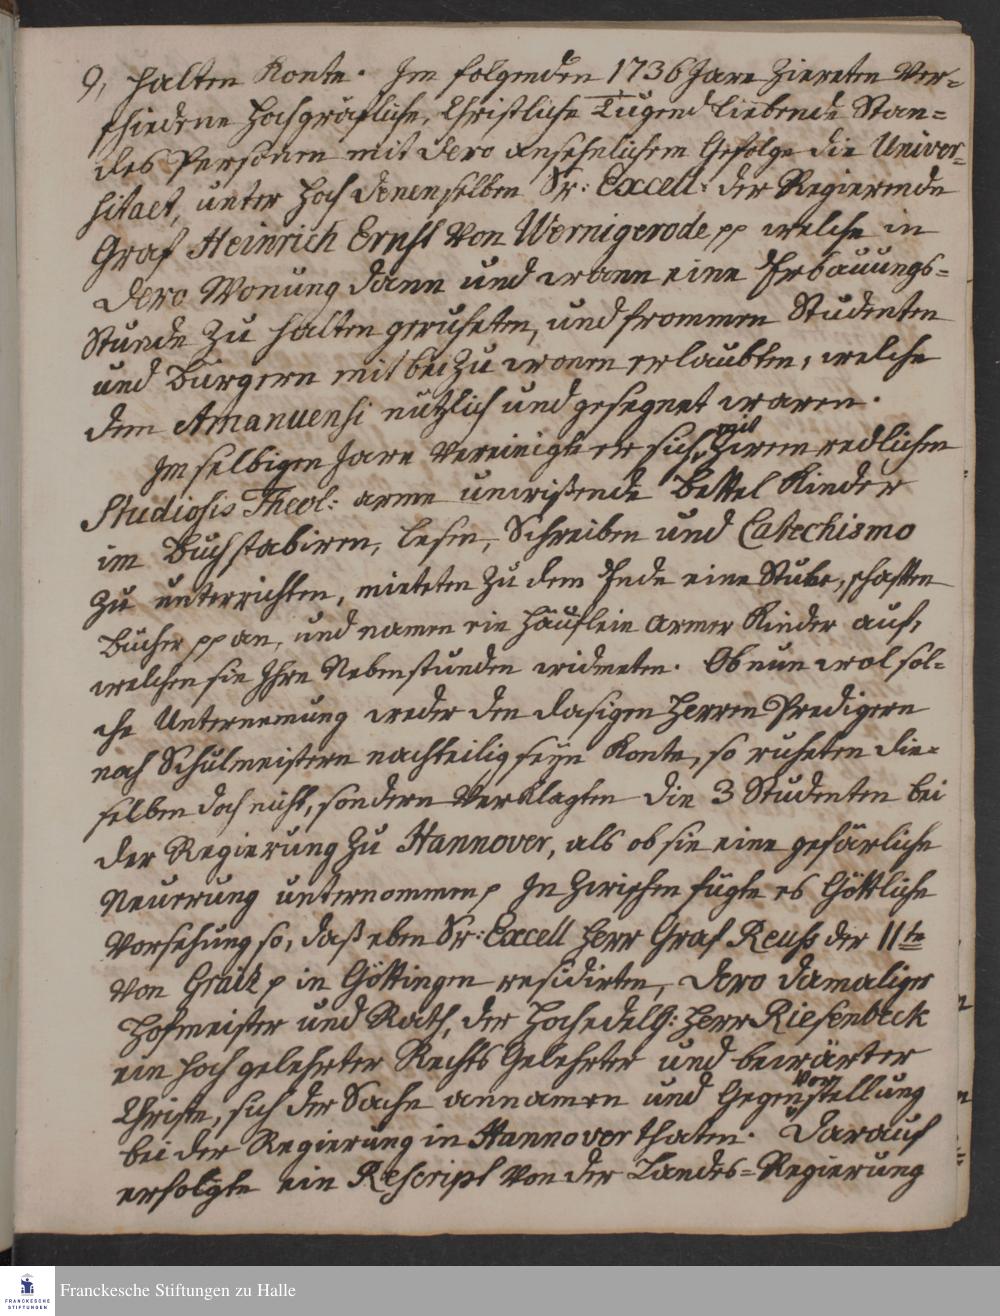 9, halten Konte. Im folgenden 1736 Jare Ziereten Ver-
schiedene Hochgräfliche, Christliche Tugend liebende Stan-
des Personen mit dero ansehnlichem Gefolge die Univer-
sitaet, unter Hoch denenselben Sr: Excell: der Regierende
Graf Heinrich Ernst von Wernigerode pp welche in
dero Wonung dann und wann eine Erbauungs-
Stunde zu halten geruheten, und frommen Studenten
und Bürgern mit bei zu wonen erlaubten, welche
dem Amanuensi nützlich und gesegnet waren.
Im selbigen Jare Vereinigte er sich, mit Zween redlichen
Studiosis Theol: arme unwißende Bettel Kinder
im Buchstabiren, Lesen, Schreiben und Catechismo
zu unterrichten, mieteten zu dem Ende eine Stube, schafften
Bücher pp an, und namen ein Häuflein armer Kinder auf,
welchen sie Ihre Nebenstunden widmeten. Ob nun wol sol-
che Unternemung weder den dasigen Herren Predigern
noch Schulmeistern nachteilig seyn Konte, so ruheten die-
selben doch nicht, sondern Verklagten die 3 Studenten bei
der Regierung zu Hannover, als ob sie eine gefärliche
Neuerung unternommen p In Zwischen fügte es Göttliche
Vorsehung so, daß eben Sr: Excell Herr Graf Reuss der 11te
von Graitz p in Göttingen residirten, dero damaliger
Hofmeister und Rath, der Hochedelg: Herr Riesenbeck
ein hoch gelehrter Rechts Gelehrter und bewärter
Christe, sich der Sache annamen und Gegenvorstellung
bei der Regierung in Hannover thaten. Darauf
erfolgte ein Rescript von der Landes-Regierung
Franckesche Stiftungen zu Halle
FRANCKESCHE
STIFTUNGEN